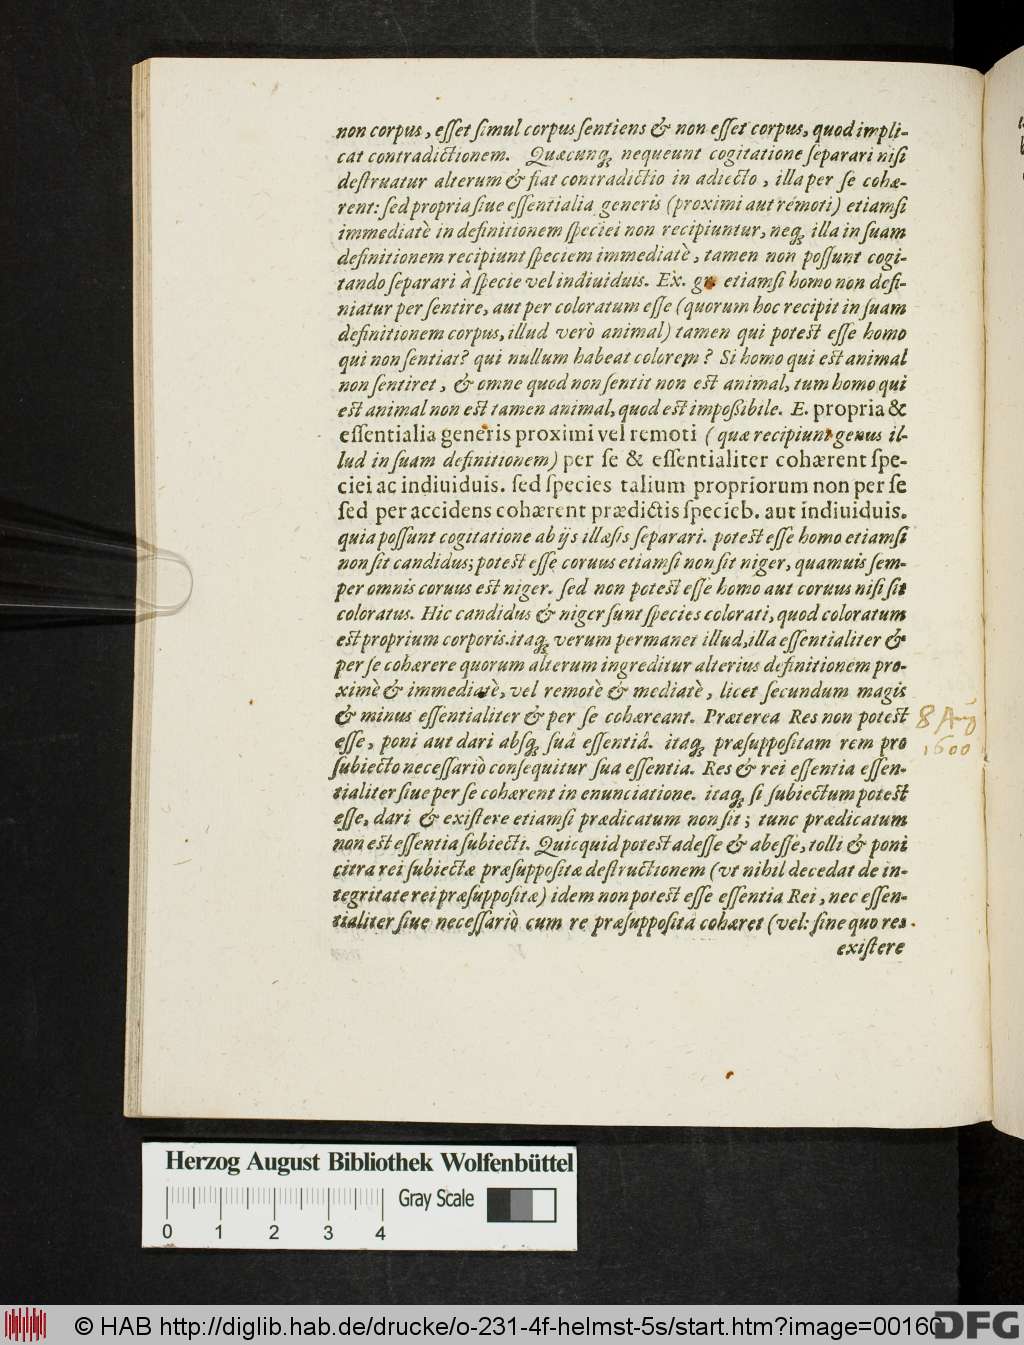 non corpus, eſſet ſimul corpus ſentiens & non eſſet corpus, quod impli-
cat contradictionem. Quæcunq; nequeunt cogitatione ſeparari niſi
deſtruatur alterum & fiat contradictio in adiecto, illa per ſe cohæ-
rent: ſed propria ſiue eſſentialia generis (proximi aut remoti) etiamſi
immediatè in definitionem ſpeciei non recipiuntur, neq; illa in ſuam
definitionem recipiunt ſpeciem immediatè, tamen non poſſunt cogi-
tando ſeparari à ſpecie vel indiuiduis. Ex. gr. etiamſi homo non defi-
niatur per ſentire, aut per coloratum eſſe (quorum hoc recipit in ſuam
definitionem corpus, illud verò animal) tamen qui poteſt eſſe homo
qui non ſentiat? qui nullum habeat colorem? Si homo qui eſt animal
non ſentiret, & omne quod non ſentit non eſt animal, tum homo qui
eſt animal non eſt tamen animal, quod eſt impoßibile. E. propria &
eſſentialia generis proximi vel remoti (quæ recipiunt genus il-
lud in ſuam definitionem) per ſe & eſſentialiter cohærent ſpe-
ciei ac indiuiduis. ſed ſpecies talium propriorum non per ſe
ſed per accidens cohærent prædictis ſpecieb. aut indiuiduis.
quia poſſunt cogitatione ab ijs illæſis ſeparari. poteſt eſſe homo etiamſi
non ſit candidus; poteſt eſſe coruus etiamſi non ſit niger, quamuis ſem-
per omnis coruus eſt niger. ſed non poteſt eſſe homo aut coruus niſi ſit
coloratus. Hic candidus & niger ſunt ſpecies colorati, quod coloratum
eſt proprium corporis. itaq; verum permanet illud, illa eſſentialiter &
per ſe cohærere quorum alterum ingreditur alterius definitionem pro-
ximè & immediatè, vel remotè & mediatè, licet ſecundum magis
& minus eſſentialiter & per ſe cohæreant. Præterea Res non poteſt
eſſe, poni aut dari abſq; ſuâ eſſentiâ. itaq; præſuppoſitam rem pro
ſubiecto neceſſariò conſequitur ſua eſſentia. Res & rei eſſentia eſſen-
tialiter ſiue per ſe cohærent in enunciatione. itaq; ſi ſubiectum poteſt
eſſe, dari & exiſtere etiamſi prædicatum non ſit; tunc prædicatum
non eſt eſſentia ſubiecti. Quicquid poteſt adeſſe & abeſſe, tolli & poni
citra rei ſubiectæ præſuppoſitæ deſtructionem (vt nihil decedat de in-
tegritate rei præſuppoſitæ) idem non poteſt eſſe eſſentia Rei, nec eſſen-
tialiter ſiue neceſſariò cum re præſuppoſita cohæret (vel: ſine quo res
exiſtere
8 Aug
1600
Herzog August Bibliothek Wolfenbüttel
Gray Scale
0 1 2 3 4
© HAB http://diglib.hab.de/drucke/o-231-4f-helmst-5s/start.htm?image=00160
DFG